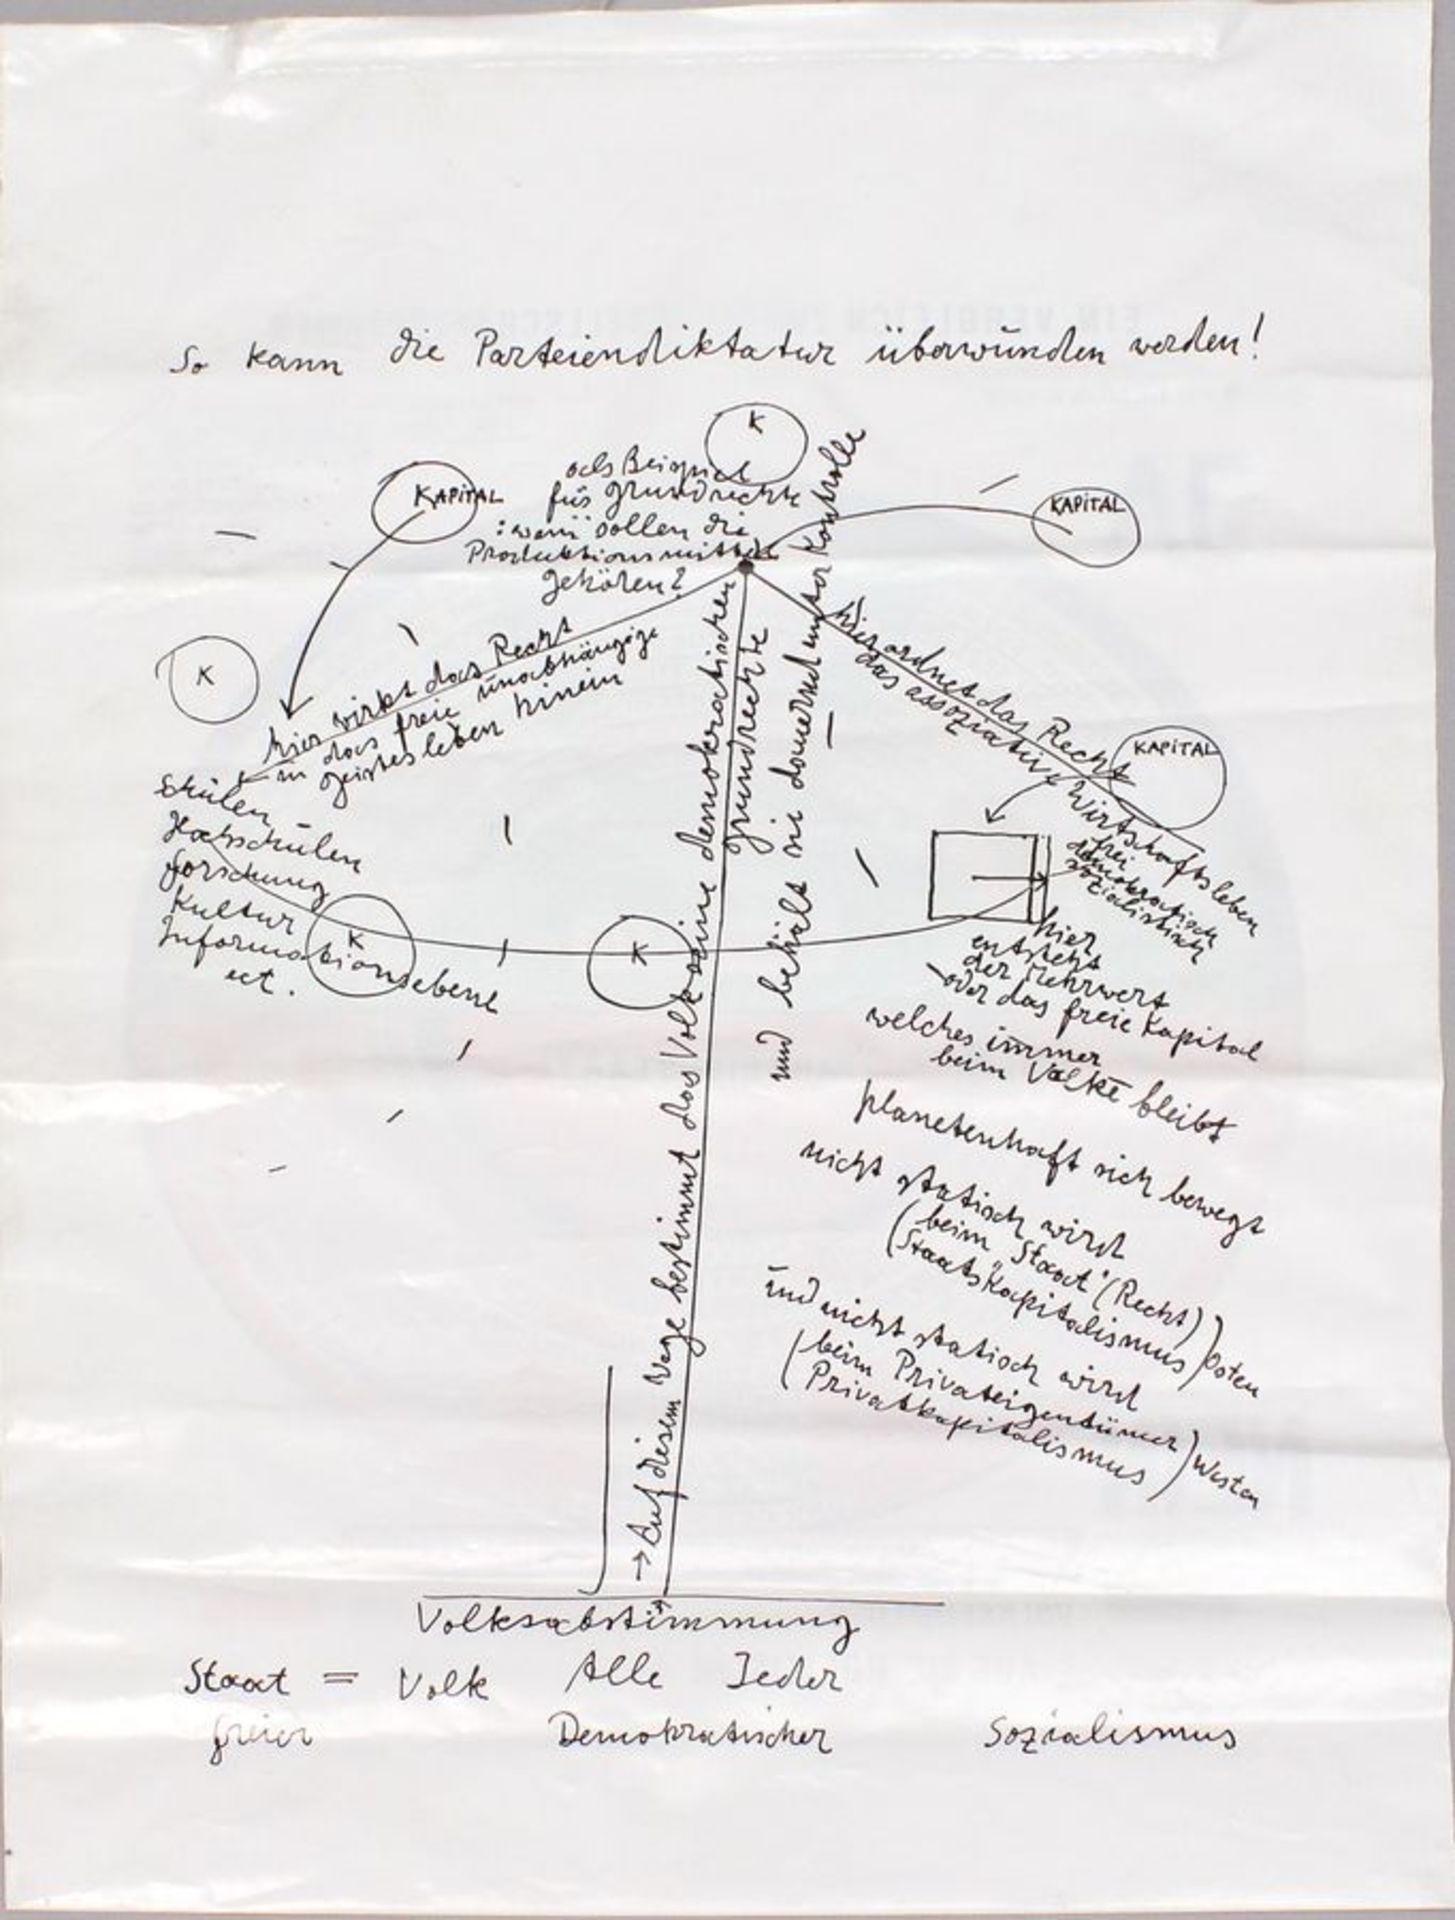 So kann die Parteiendiktatur überwunden werden!
K
als Beispiel
für Grundrechte
: wem sollen die
Produktionsmittel
gehören?
KAPITAL
KAPITAL
K
hier wirkt das Recht
in das freie unabhängige
geistesleben hinein
Schulen
Hochschulen
forschung
Kultur
Informationsebene
ect.
K
K
hier ordnet das Recht
das assoziative Wirtschaftsleben
frei
demokratisch
sozialistisch
KAPITAL
hier
entsteht
der Mehrwert
oder das freie Kapital
welches immer
beim Volke bleibt
planetenhaft sich bewegt
nicht statisch wird
(beim "Staat" (Recht))
(Staatskapitalismus) Osten
und nicht statisch wird
(beim Privateigentümer)
(Privatkapitalismus) Westen
→ Auf diesem Wege bestimmt das Volk seine demokratischen
grundrechte
und behält sie dauernd unter Kontrolle
Volksabstimmung
Staat = Volk Alle Jeder
freier Demokratischer Sozialismus